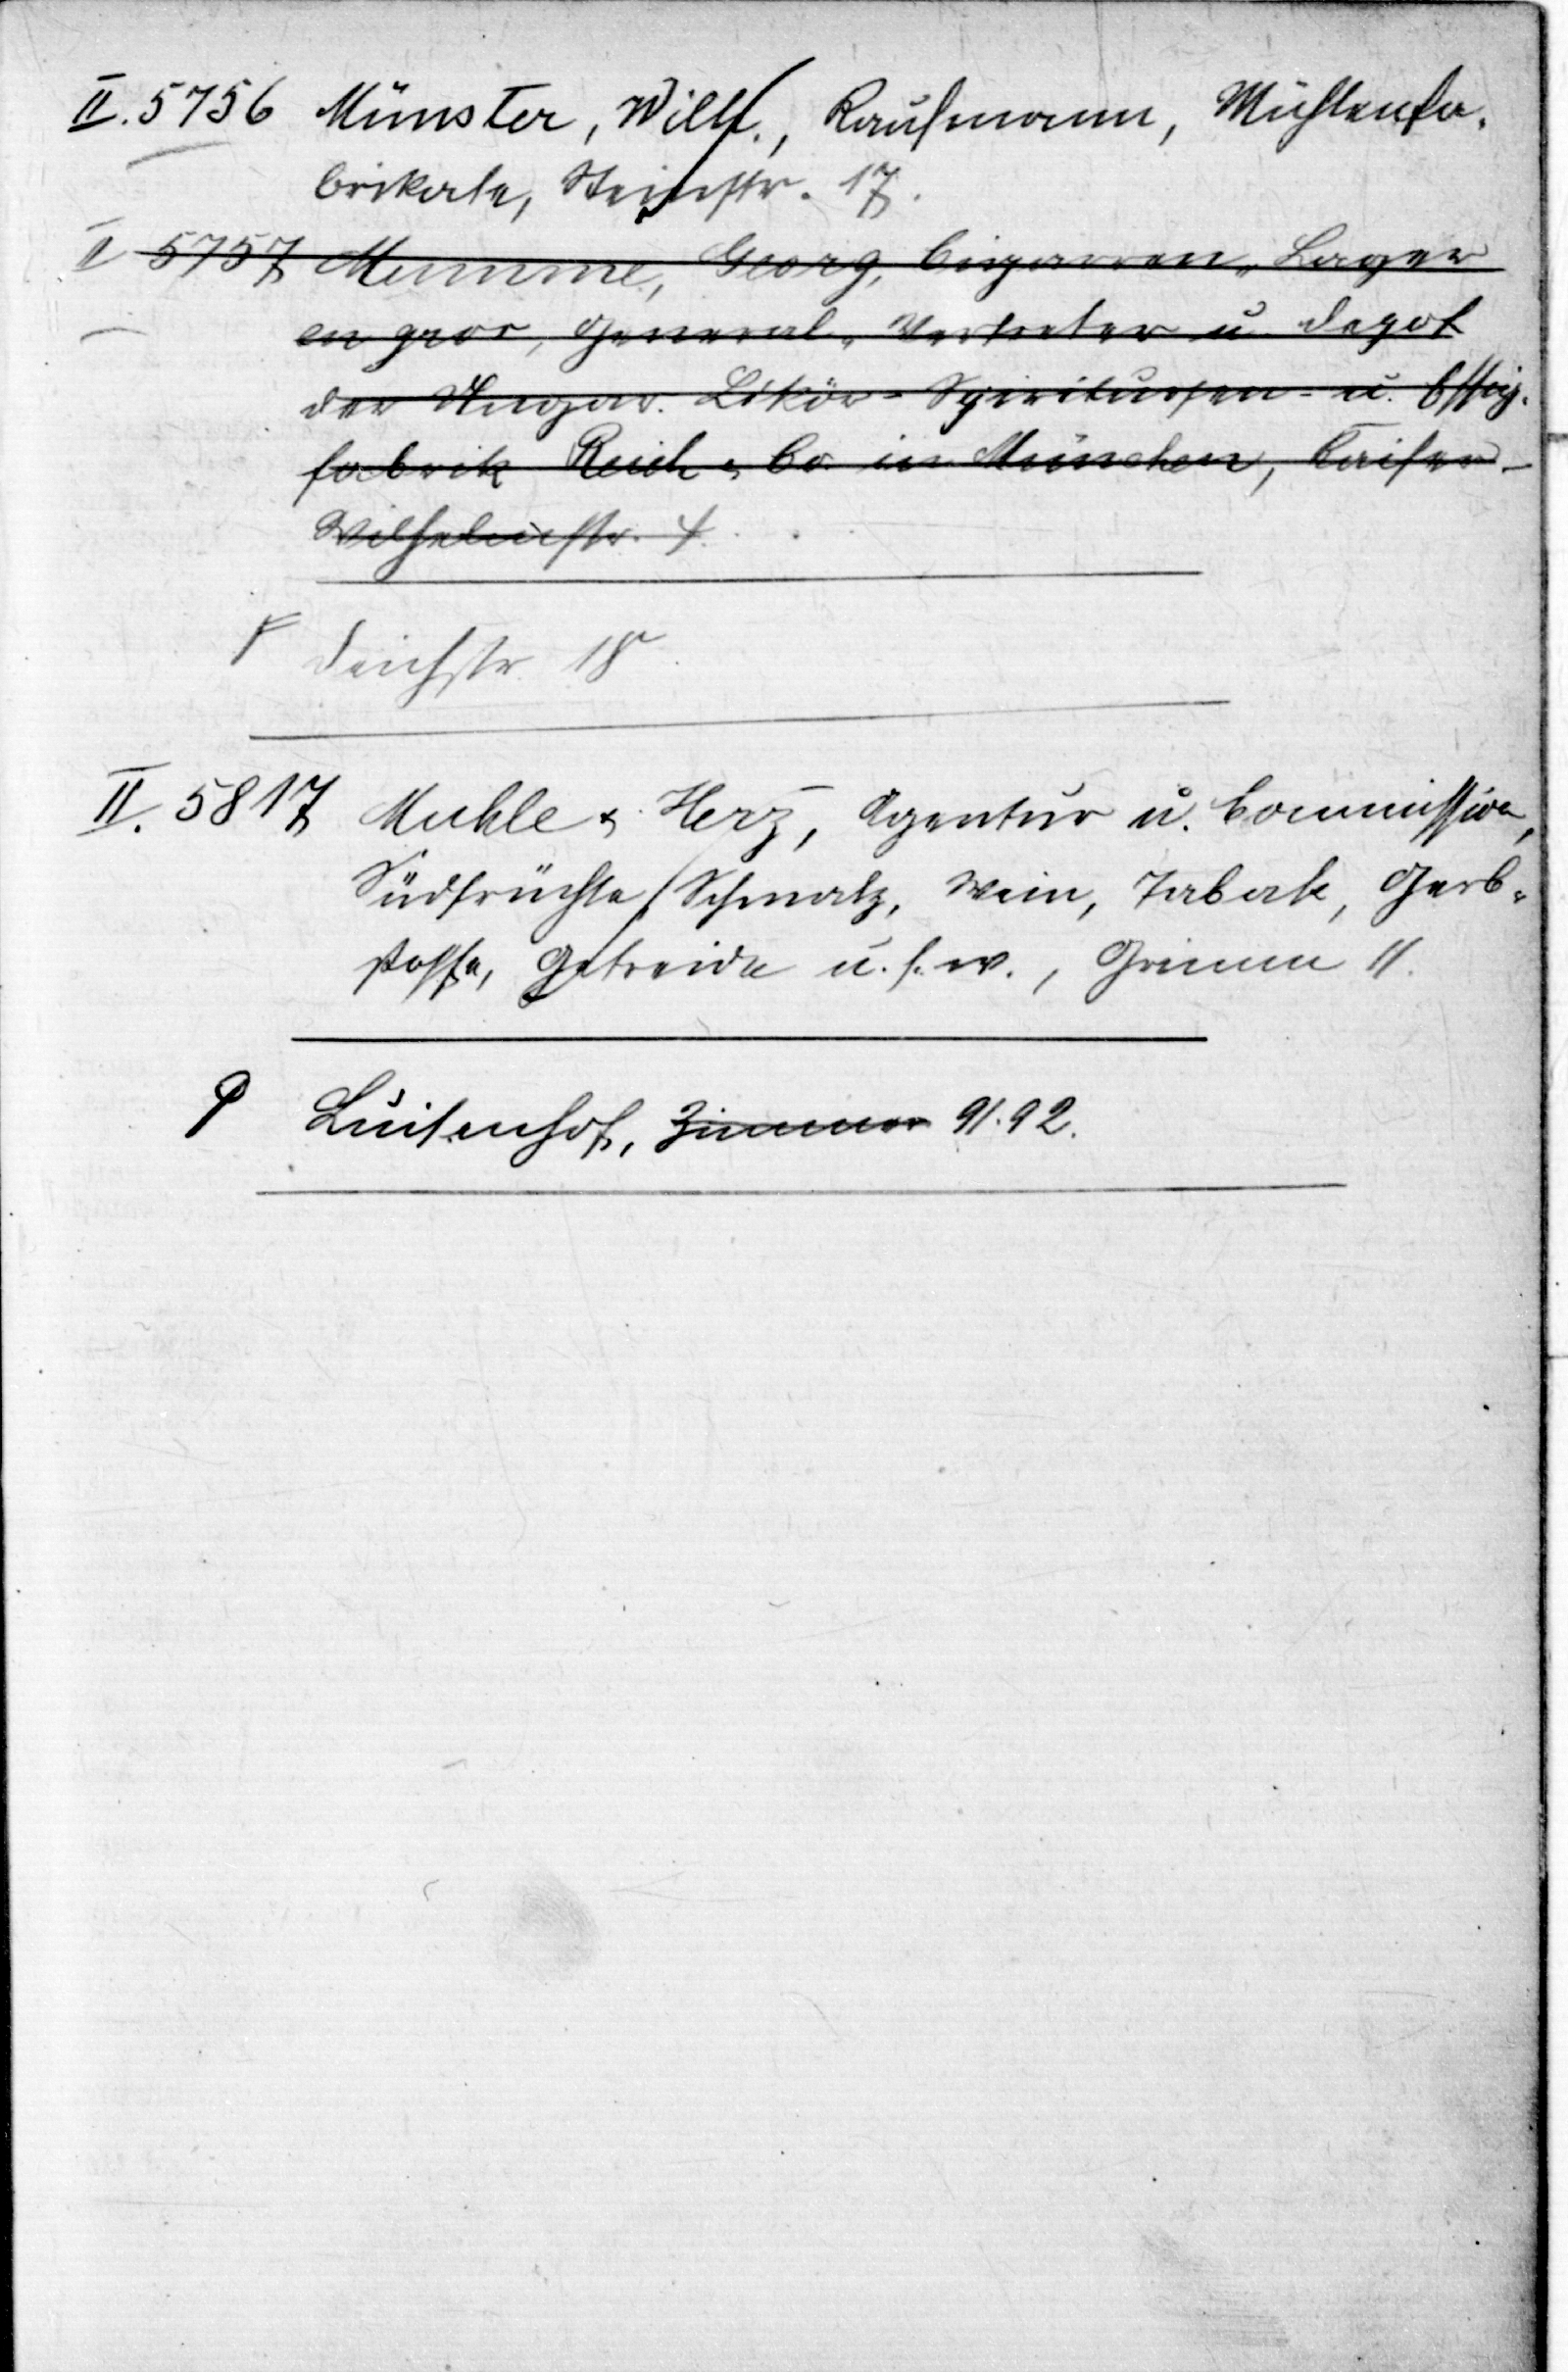 II. 5756 Münster, Wilh., Kaufmann, Mühlenfa-
brikate, Steinstr. 17.
II 5757 Mumme, Georg, Cigarren-Lager
en gros, General-Vertreter u. Depot
der Ungar. Likör- Spirituosen- u. Essig-
fabrik Reich & Co. in München, Kaiser-
Wilhelmstr. 4.
Deichstr. 18
II. 5817 Muhle & Herz, Agentur u. Commission,
Südfrüchte, Schmalz, Wein, Tabak, Gerb-
stoffe, Getreide u. s. w., Grimm 11.
Luisenhof, Zimmer 91.92.